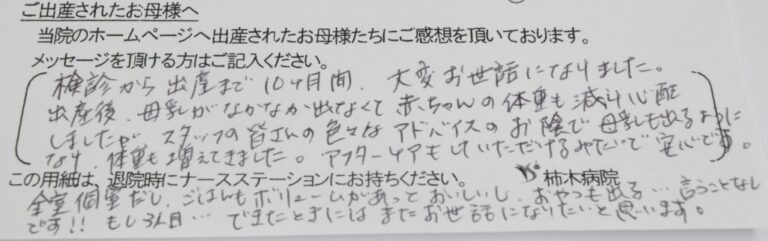 ご出産されたお母様へ
当院のホームページへ出産されたお母様たちにご感想を頂いております。
メッセージを頂ける方はご記入ください。
検診から出産まで10ヶ月間、大変お世話になりました。
出産後、母乳がなかなか出てなくて赤ちゃんの体重も減り心配
しましたが、スタッフの皆さんの色々なアドバイスのお陰で母乳も出るように
なり、体重も増えてきました。アフターケアもしていただけるみたいで安心です。
この用紙は、退院時にナースステーションにお持ちください。 柿木病院
全室個室だし、ごはんもボリュームがあっておいしいし、おやつも出る…言うことなし
です!!もし3人目…できたときにはまたお世話になりたいと思います。